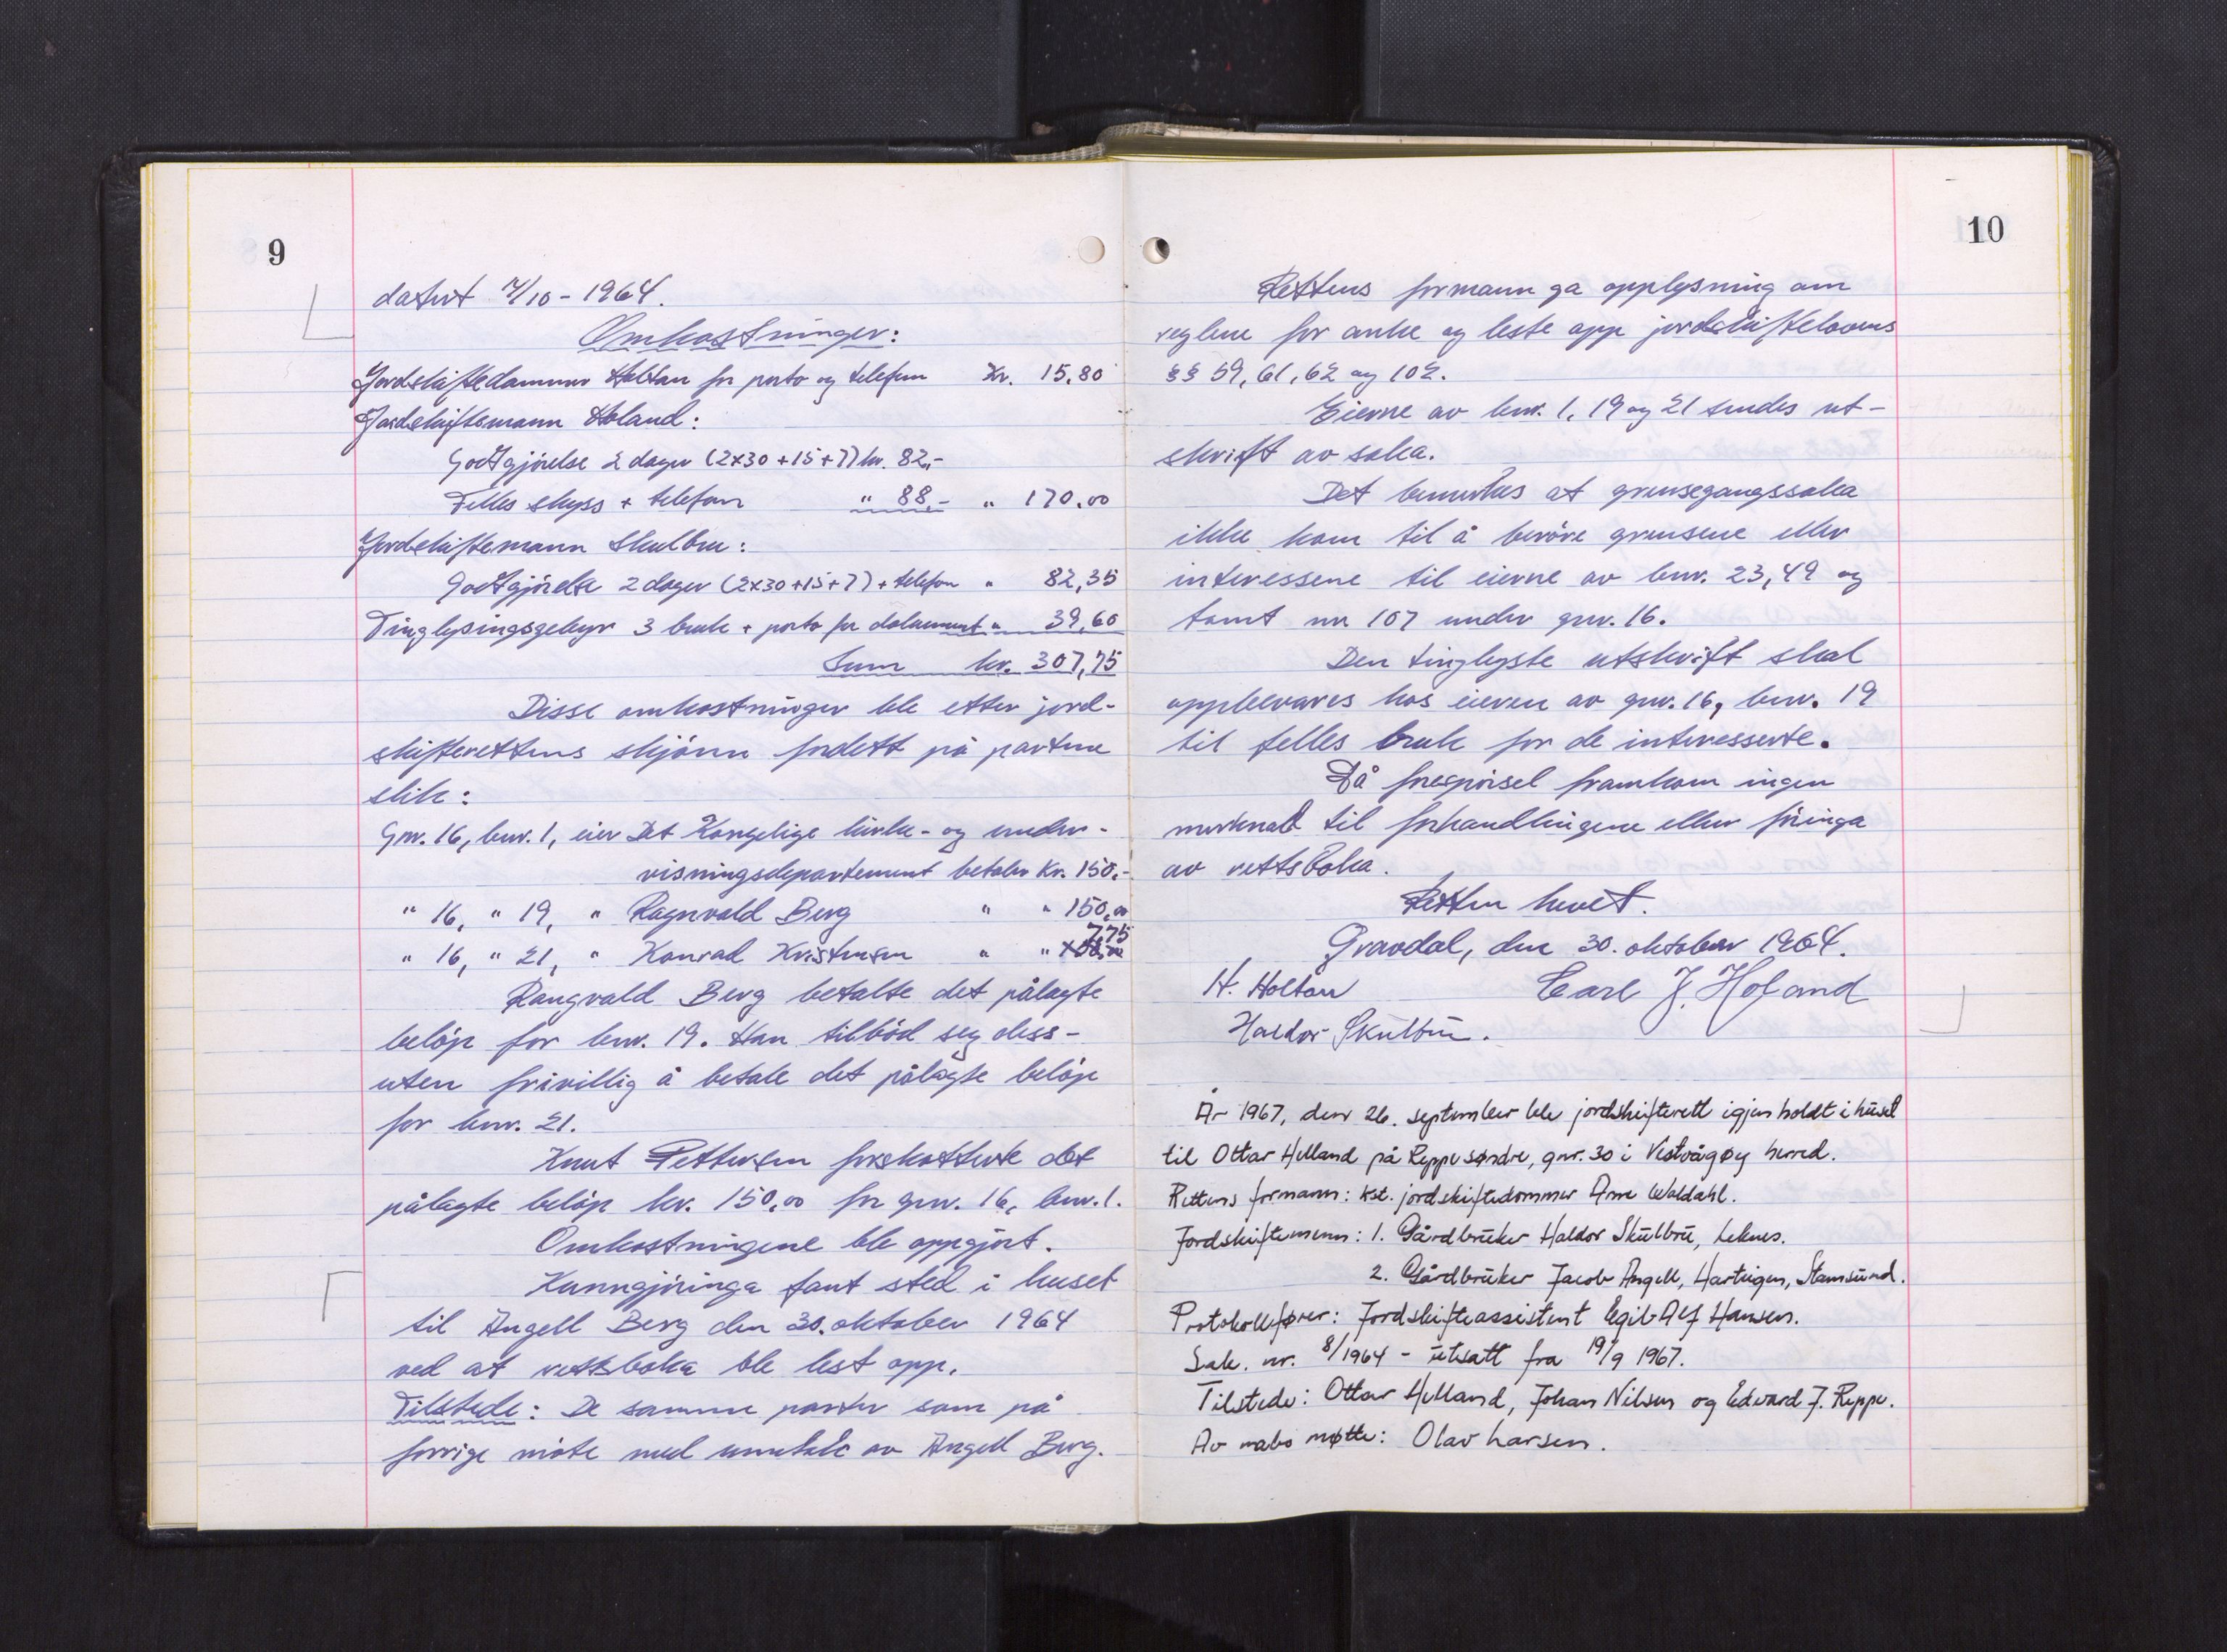 9
datert 7/10 - 1964.
Omkostninger:
Jordskiftedommer Holtan for porto og telefon Kr. 15,80
Jordskiftemann Holand:
Godtgjörelse 2 dager (2x30+15+7) kr. 82,-
Felles skyss + telefon " 88,- " 170,00
Jordskiftemann Skulbru:
Godtgjörelse 2 dager (2x30+15+7) + telefon " 82,35
Tinglysingsgebyr 3 bruk + porto for dokument " 39,60
Sum kr. 307,75
Disse omkostninger ble etter jord-
skifterettens skjönn fordelt på partene
slik:
Gnr. 16, bnr. 1, eier Det Kongelige kirke- og under-
visningsdepartement betaler Kr. 150,-
" 16, " 19, " Ragnvald Berg " " 150,00
" 16, " 21, " Konrad Kristensen " " 7,75
Rangvald Berg betalte det pålagte
belöp for bnr. 19. Han tilböd seg dess-
uten frivillig å betale det pålagte belöp
for bnr. 21.
Knut Pettersen forskotterte det
pålagte belöp kr. 150,00 for gnr. 16, bnr. 1.
Omkostningene ble oppgjort.
Kunngjöringa fant sted i huset
til Angell Berg den 30. oktober 1964
ved at rettsboka ble lest opp.
Tilstede: De samme parter som på
forrige möte med unntak av Angell Berg.
10
Rettens formann ga opplysning om
reglene for anke og leste opp jordskiftelovens
§§ 59, 61, 62 og 102.
Eierne av bnr. 1, 19 og 21 sendes ut-
skrift av saka.
Det bemerkes at grensegangssaka
ikke kom til å beröre grensene eller
interessene til eierne av bnr. 23, 49 og
tomt nr 107 under gnr. 16.
Den tinglyste utskrift skal
oppbevares hos eieren av gnr. 16, bnr. 19
til felles bruk for de interesserte.
På forespörsel framkom ingen
merknad til forhandlingene eller föringa
av rettsboka.
Retten hevet.
Gravdal, den 30. oktober 1964.
H. Holtan Carl J. Holand
Haldor Skulbru.
År 1967, den 26. september ble jordskifterett igjen holdt i huset
til Ottar Helland på Reppe søndre, gnr. 30 i Vestvågøy herred.
Rettens formann: kst. jordskiftedommer Arne Waldahl.
Jordskiftemenn: 1. Gårdbruker Haldor Skulbru, Leknes.
2. Gårdbruker Jacob Angell, Hartvigen, Stamsund.
Protokollfører: Jordskifteassistent Egil Alf Hansen.
Sak. nr. 8/1964 - utsatt fra 19/9 1967.
Tilstede: Ottar Helland, Johan Nilsen og Edvard J. Reppe.
Av nabo møtte: Olav Larsen.